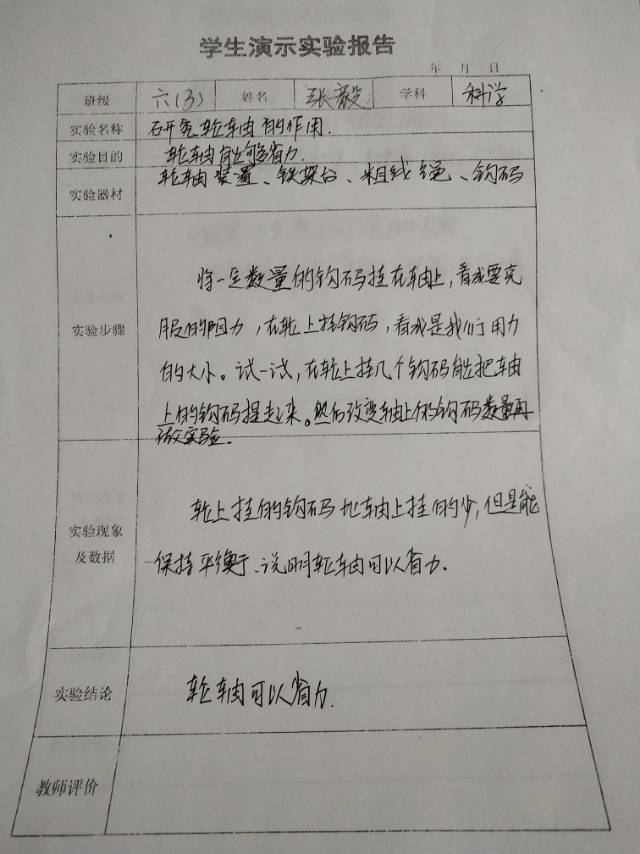 学生演示实验报告
年 月 日
班级 六(3) 姓名 张毅 学科 科学
实验名称 研究轮轴的作用.
实验目的 轮轴能够省力.
实验器材 轮轴装置、铁架台、粗线绳、钩码
将一定数量的钩码挂在轴上,看成要克
实验步骤 服的阻力,在轮上挂钩码,看成是我们用力
的大小。试一试,在轮上挂几个钩码能把轴
上的钩码提起来。然后改变轴上的钩码数量再
做实验.
轮上挂的钩码比轴上挂的少,但是能
实验现象
及数据 保持平衡、说明轮轴可以省力.
实验结论 轮轴可以省力.
教师评价